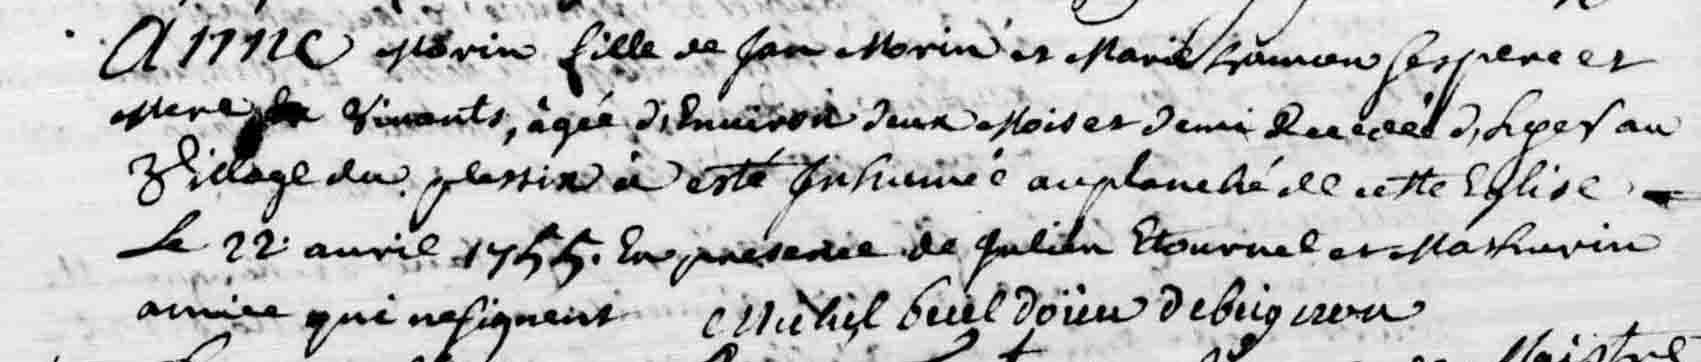 Anne Morin fille de Jan Morin et Marie ses pere et
Mere Vivants, agée d'Environ deux Mois et demi decedée d'hyer au
Village du plessix a esté Inhumée au planché de cette Eglise
Le 22: avril 1755. En presence de Julien Etournel et Mathurin
amice qui ne signent Michel